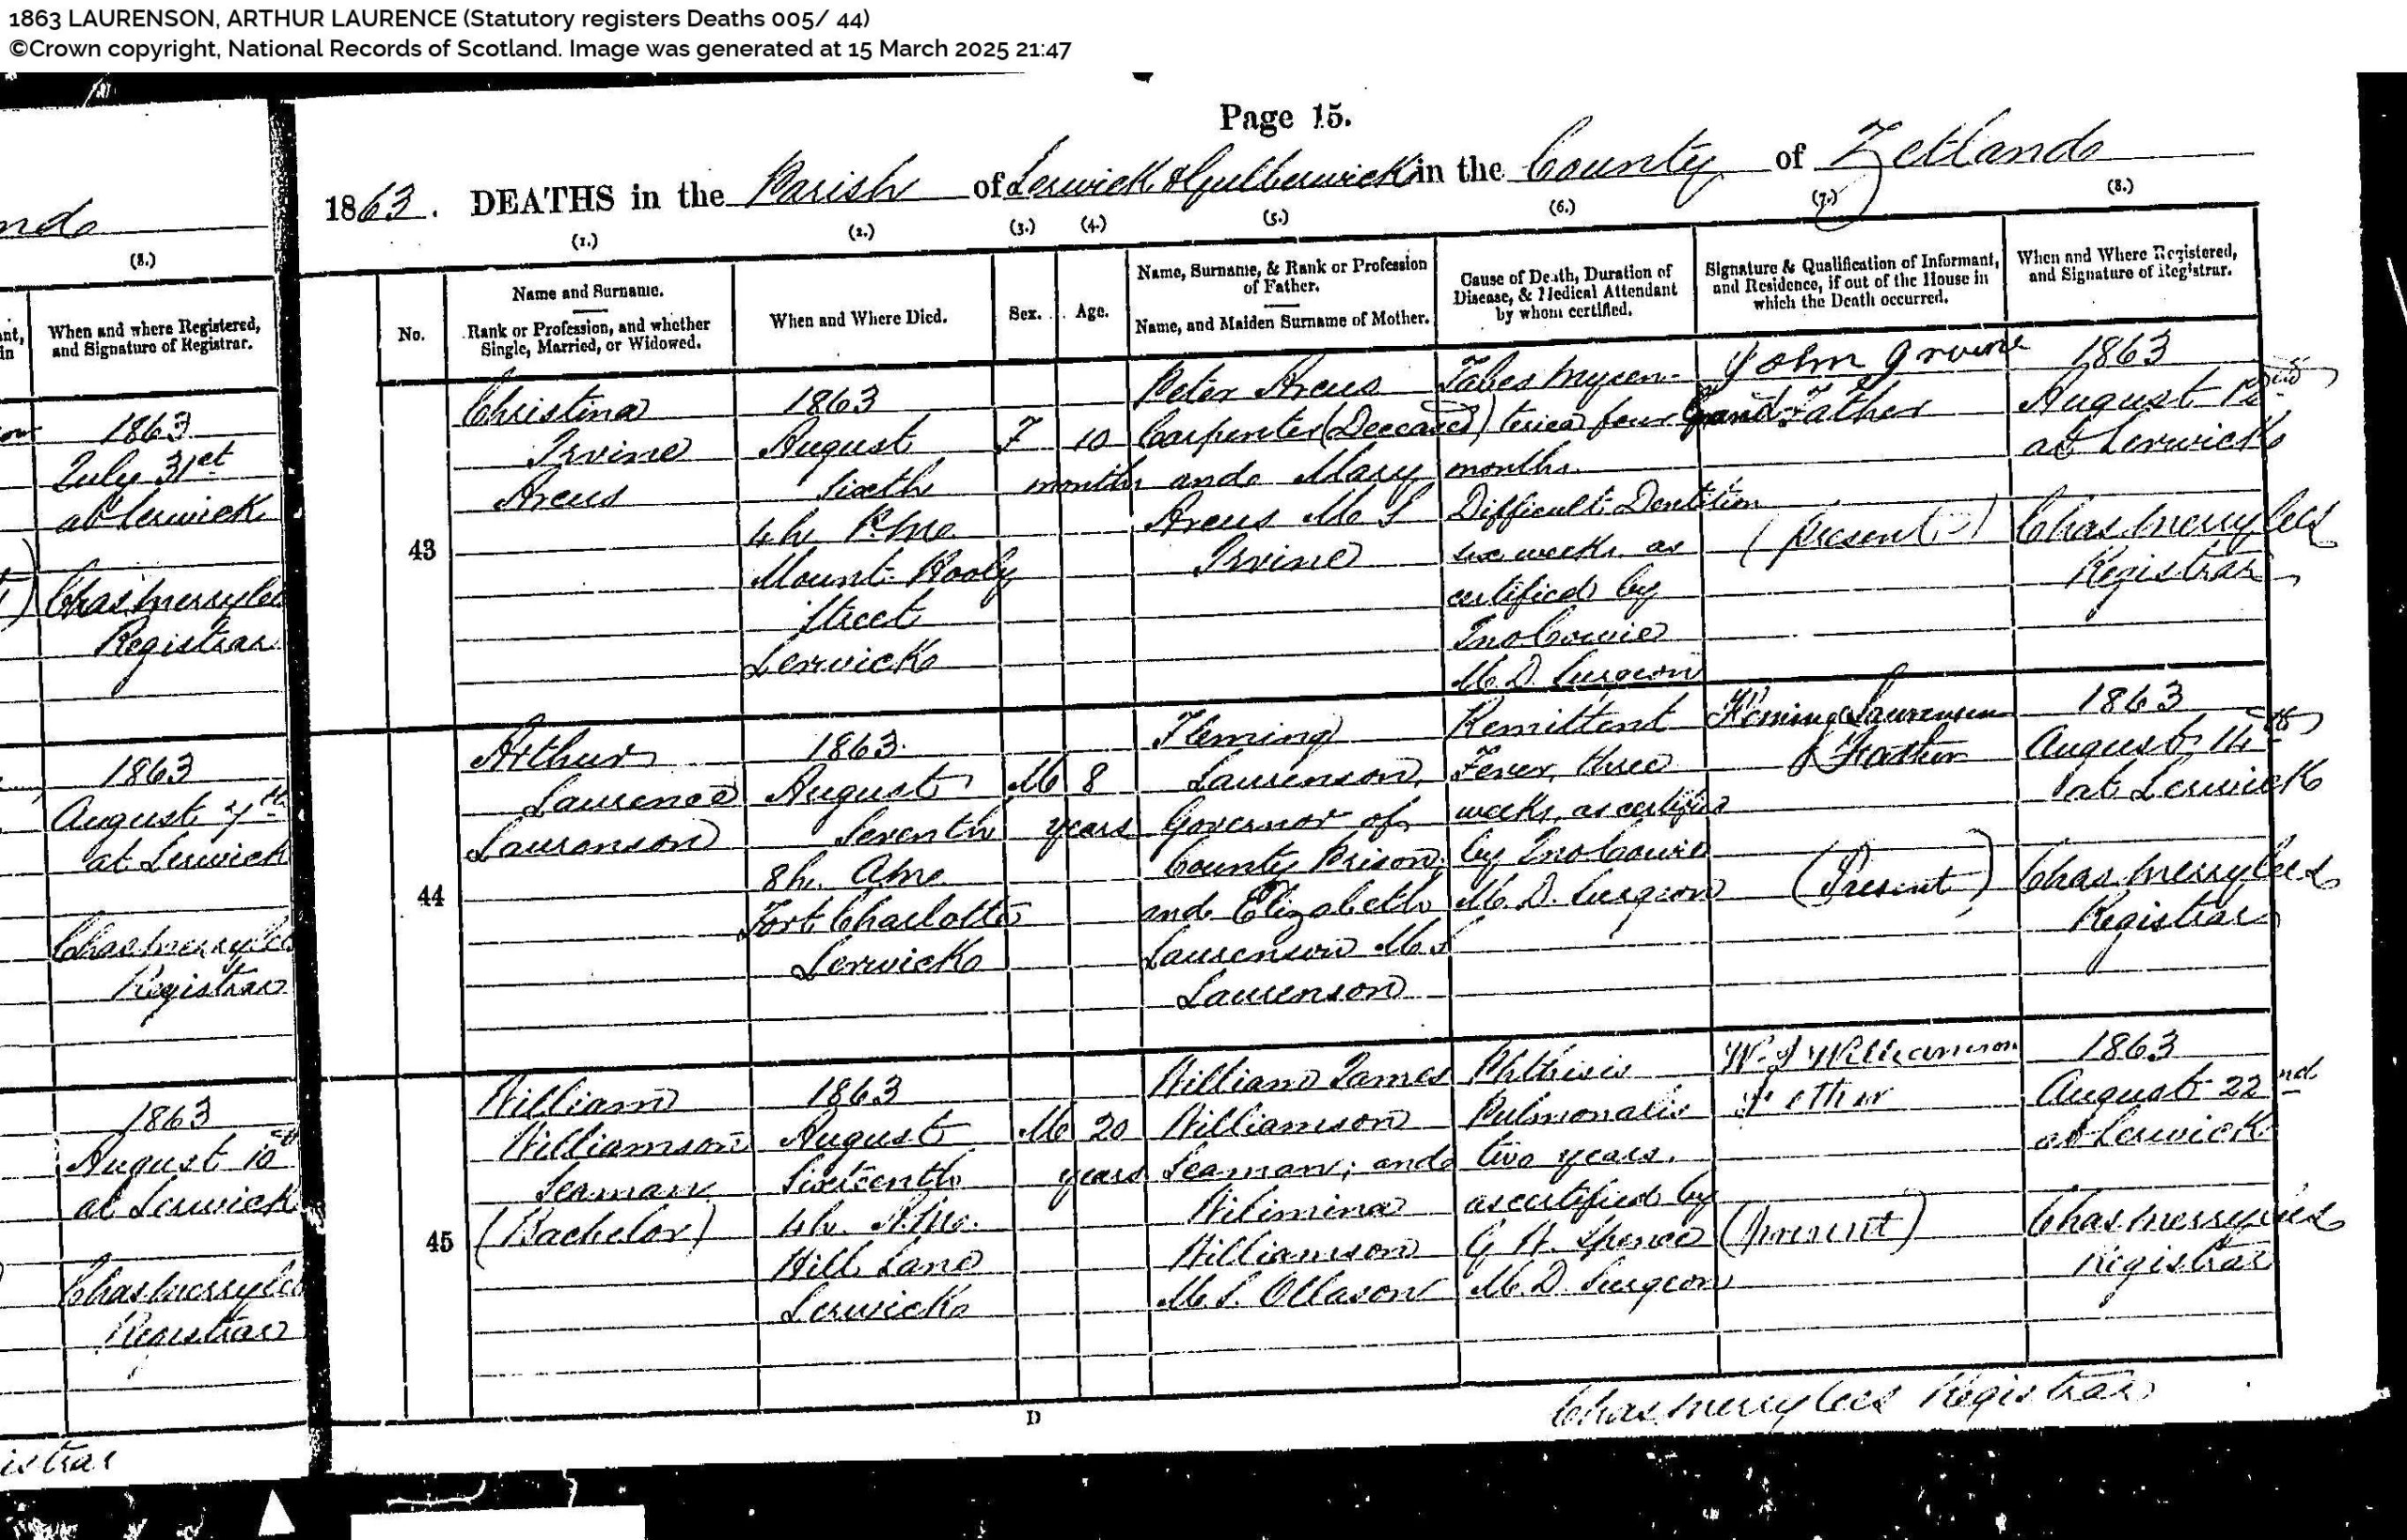 1863 LAURENSON, ARTHUR LAURENCE (Statutory registers Deaths 005/ 44)
©Crown copyright, National Records of Scotland. Image was generated at 15 March 2025 21:47
Page 15.
1863. DEATHS in the Parish of Lerwick & Gulberwick in the County of Zetland
(1.) (2.) (3.) (4.) (5.) (6.) (7.) (8.)
No.
Name and Surname.
Rank or Profession, and whether
Single, Married, or Widowed.
When and Where Died.
Sex.
Age.
Name, Surname, & Rank or Profession
of Father.
Name, and Maiden Surname of Mother.
Cause of Death, Duration of
Disease, & Medical Attendant
by whom certified.
Signature & Qualification of Informant,
and Residence, if out of the House in
which the Death occurred.
When and Where Registered,
and Signature of Registrar.
43
Christina
Irvine
Arcus
1863
August
Sixth
4h. P.M.
Mount Hooly
Street
Lerwick
F
10
months
Peter Arcus
Carpenter (Deceased)
and Mary
Arcus M.S.
Irvine
Tabes Mysen-
terica four
months.
Difficult Dentition
six weeks, as
certified by
Jno Cowie
M.D. Surgeon
John Irvine
Grand Father
(present)
1863
August 12
at Lerwick
Chas Merrylees
Registrar
44
Arthur
Laurence
Laurenson
1863.
August
Seventh
8h. A.M.
Fort Charlotte
Lerwick
M
8
years
Fleming
Laurenson,
Governor of
County Prison;
and Elizabeth
Laurenson M.S.
Laurenson
Remittent
Fever, three
weeks, as certified
by Jno Cowie
M.D. Surgeon
Fleming Laurenson
Father
(Present)
1863
August 14th
at Lerwick
Chas Merrylees
Registrar
45
William
Williamson
Seaman
(Bachelor)
1863
August
Sixteenth
4h. A.M.
Hill Lane
Lerwick
M
20
years
William James
Williamson
Seaman; and
Wilimina
Williamson
M.S. Ollason
Phthisis
Pulmonalis
two years.
as certified by
G W. Spence
M.D. Surgeon
W. J Williamson
Father
(present)
1863
August 22nd
at Lerwick
Chas Merrylees
Registrar
D
Chas Merrylees Registrar
(8.)
When and where Registered,
and Signature of Registrar.
1863
July 31st
at Lerwick
Chas Merrylees
Registrar
1863
August 7th
at Lerwick
Chas Merrylees
Registrar
1863
August 10th
at Lerwick
Chas Merrylees
Registrar